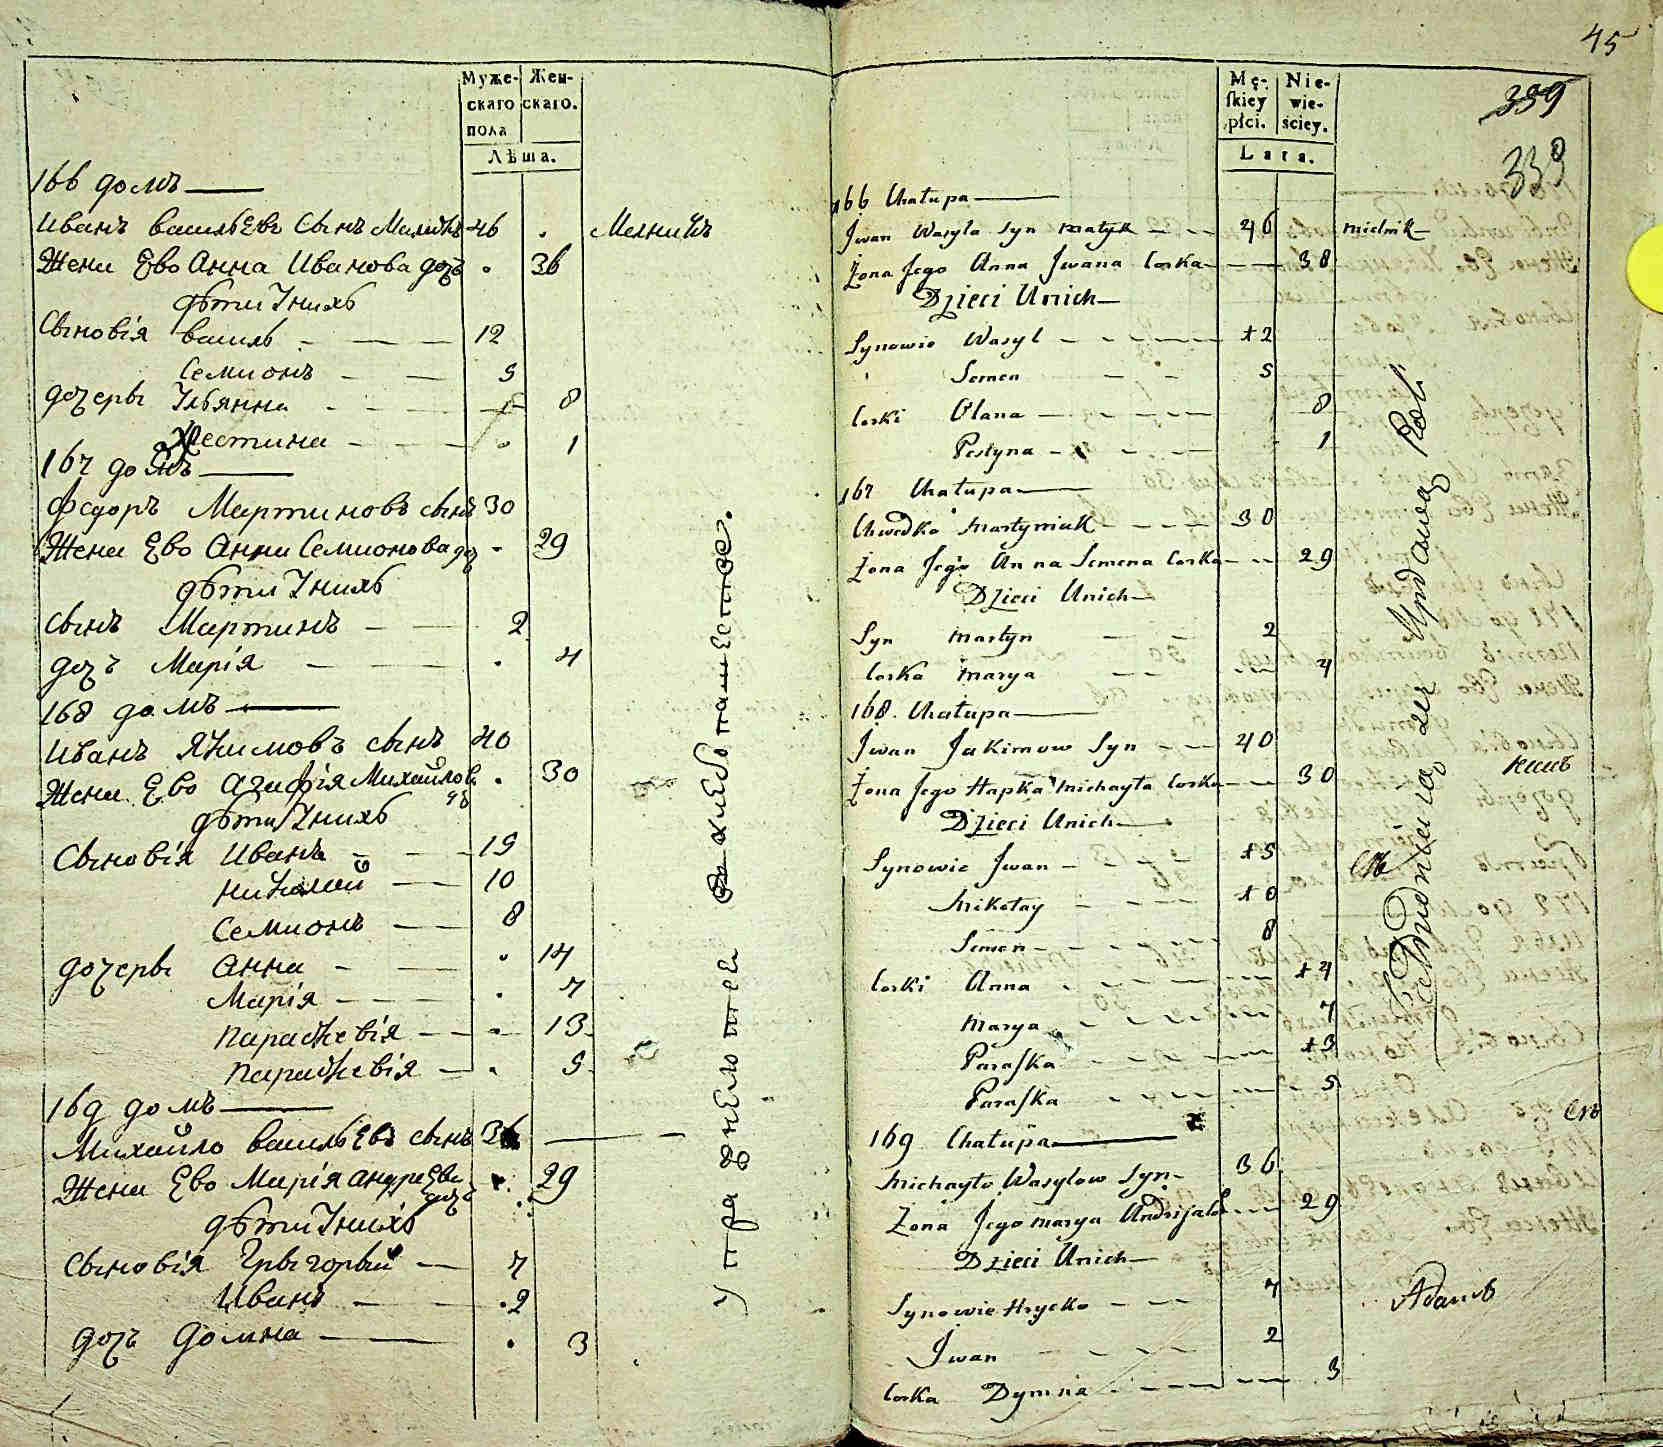 Муже- Жен-
скаго скаго.
пола
Лѣта.
166 домъ
Иванъ васильЕвъ Сынъ 46 . Мелникъ
Жена Ево Анна Иванова доч . 36
дѣти Унихъ
Сыновія василь 12
Семионъ 5
дочеры Ульянна 8
Хрестина . 1
167 домъ
Федоръ Мартиновъ сынъ 30
Жена Ево Анна Семионова доч . 29
дѣти Унихъ
Сынъ Мартинъ 2
доч Марія . 4
168 домъ
Иванъ Якимовъ сынъ 40
Жена Ево Агафія Михайлов . 30
дѣти Унихъ
Сыновія Иванъ 15
Николай 10
Семионъ 8
дочеры Анна . 14
Марія . 7
Параскевія . 13
Параскевія . 5
169 домъ
Михайло васильЕвъ сынъ 36
Жена Ево Марія андреЕва . 29
доч
дѣти Унихъ
Сыновія Грыгорый 7
Иванъ 2
доч Домна . 3
45
Mę- Nie-
skiey wie-
płci. ściey.
Lata.
339
339
166 Chałupa
Jwan Wasyla Syn 46 mielnik
Żona Jego Anna Jwana Corka 38
Dzieci Unich
Synowie Wasyl 12
Semen 5
Corki Olana 8
Pestyna 1
167 Chałupa
Chwedko Martyniuk 30
Żona Jego Anna Semena Corka 29
Dzieci Unich
Syn Martyn 2
Corka Marya 4
168 Chałupa
Jwan Jakimow Syn 40
Żona Jego Hapka Michayła Corka 30
Dzieci Unich
Synowie Jwan 15
Mikołay 10
Semen 8
Corki Anna 14
Marya 7
Paraska 13
Paraska 5
169 Chałupa
Michayło Wasylow Syn 36
Żona Jego Marya 29
Dzieci Unich
Synowie Hrycko 7
Jwan 2
Corka Dymna 3